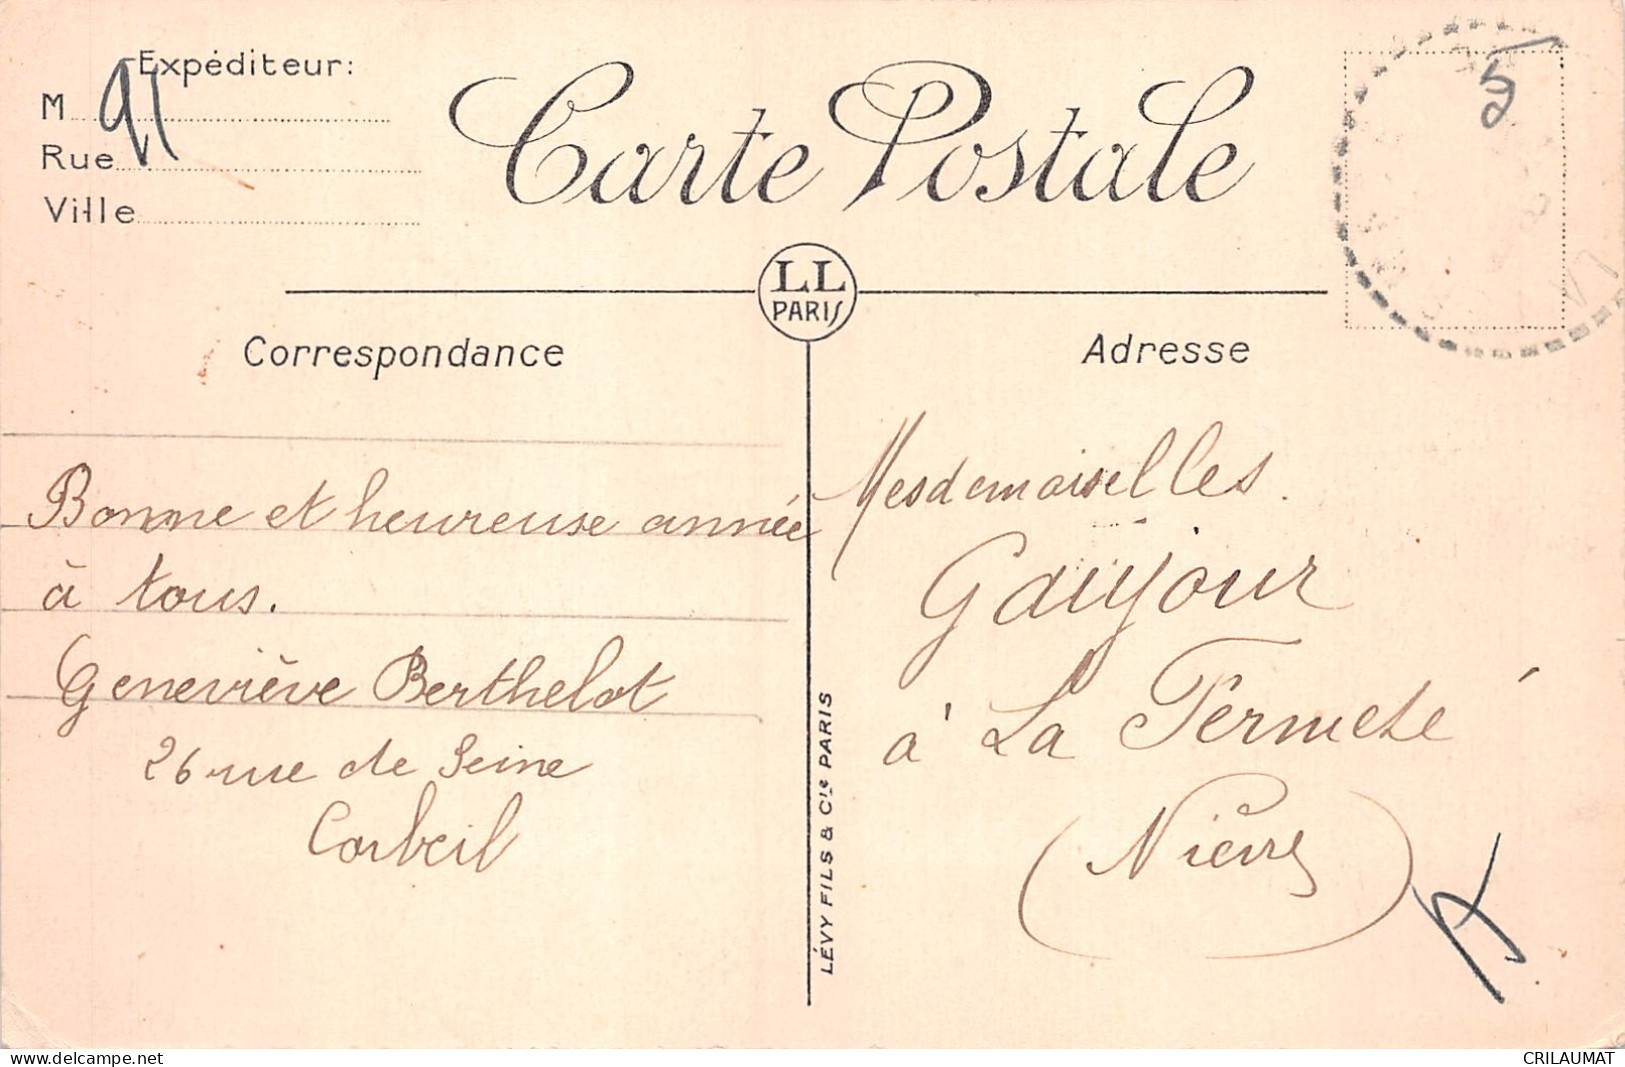 Expéditeur:
M
91
Rue
Ville
Carte Postale
5
LL
PARIS
Correspondance
Adresse
Bonne et heureuse année
à tous.
Geneviève Berthelot
26 rue de Seine
Corbeil
LÉVY FILS & Cie PARIS
Mesdemoiselles
Gaujour
à La Fermeté
(Nièvre)
www.delcampe.net
CRILAUMAT